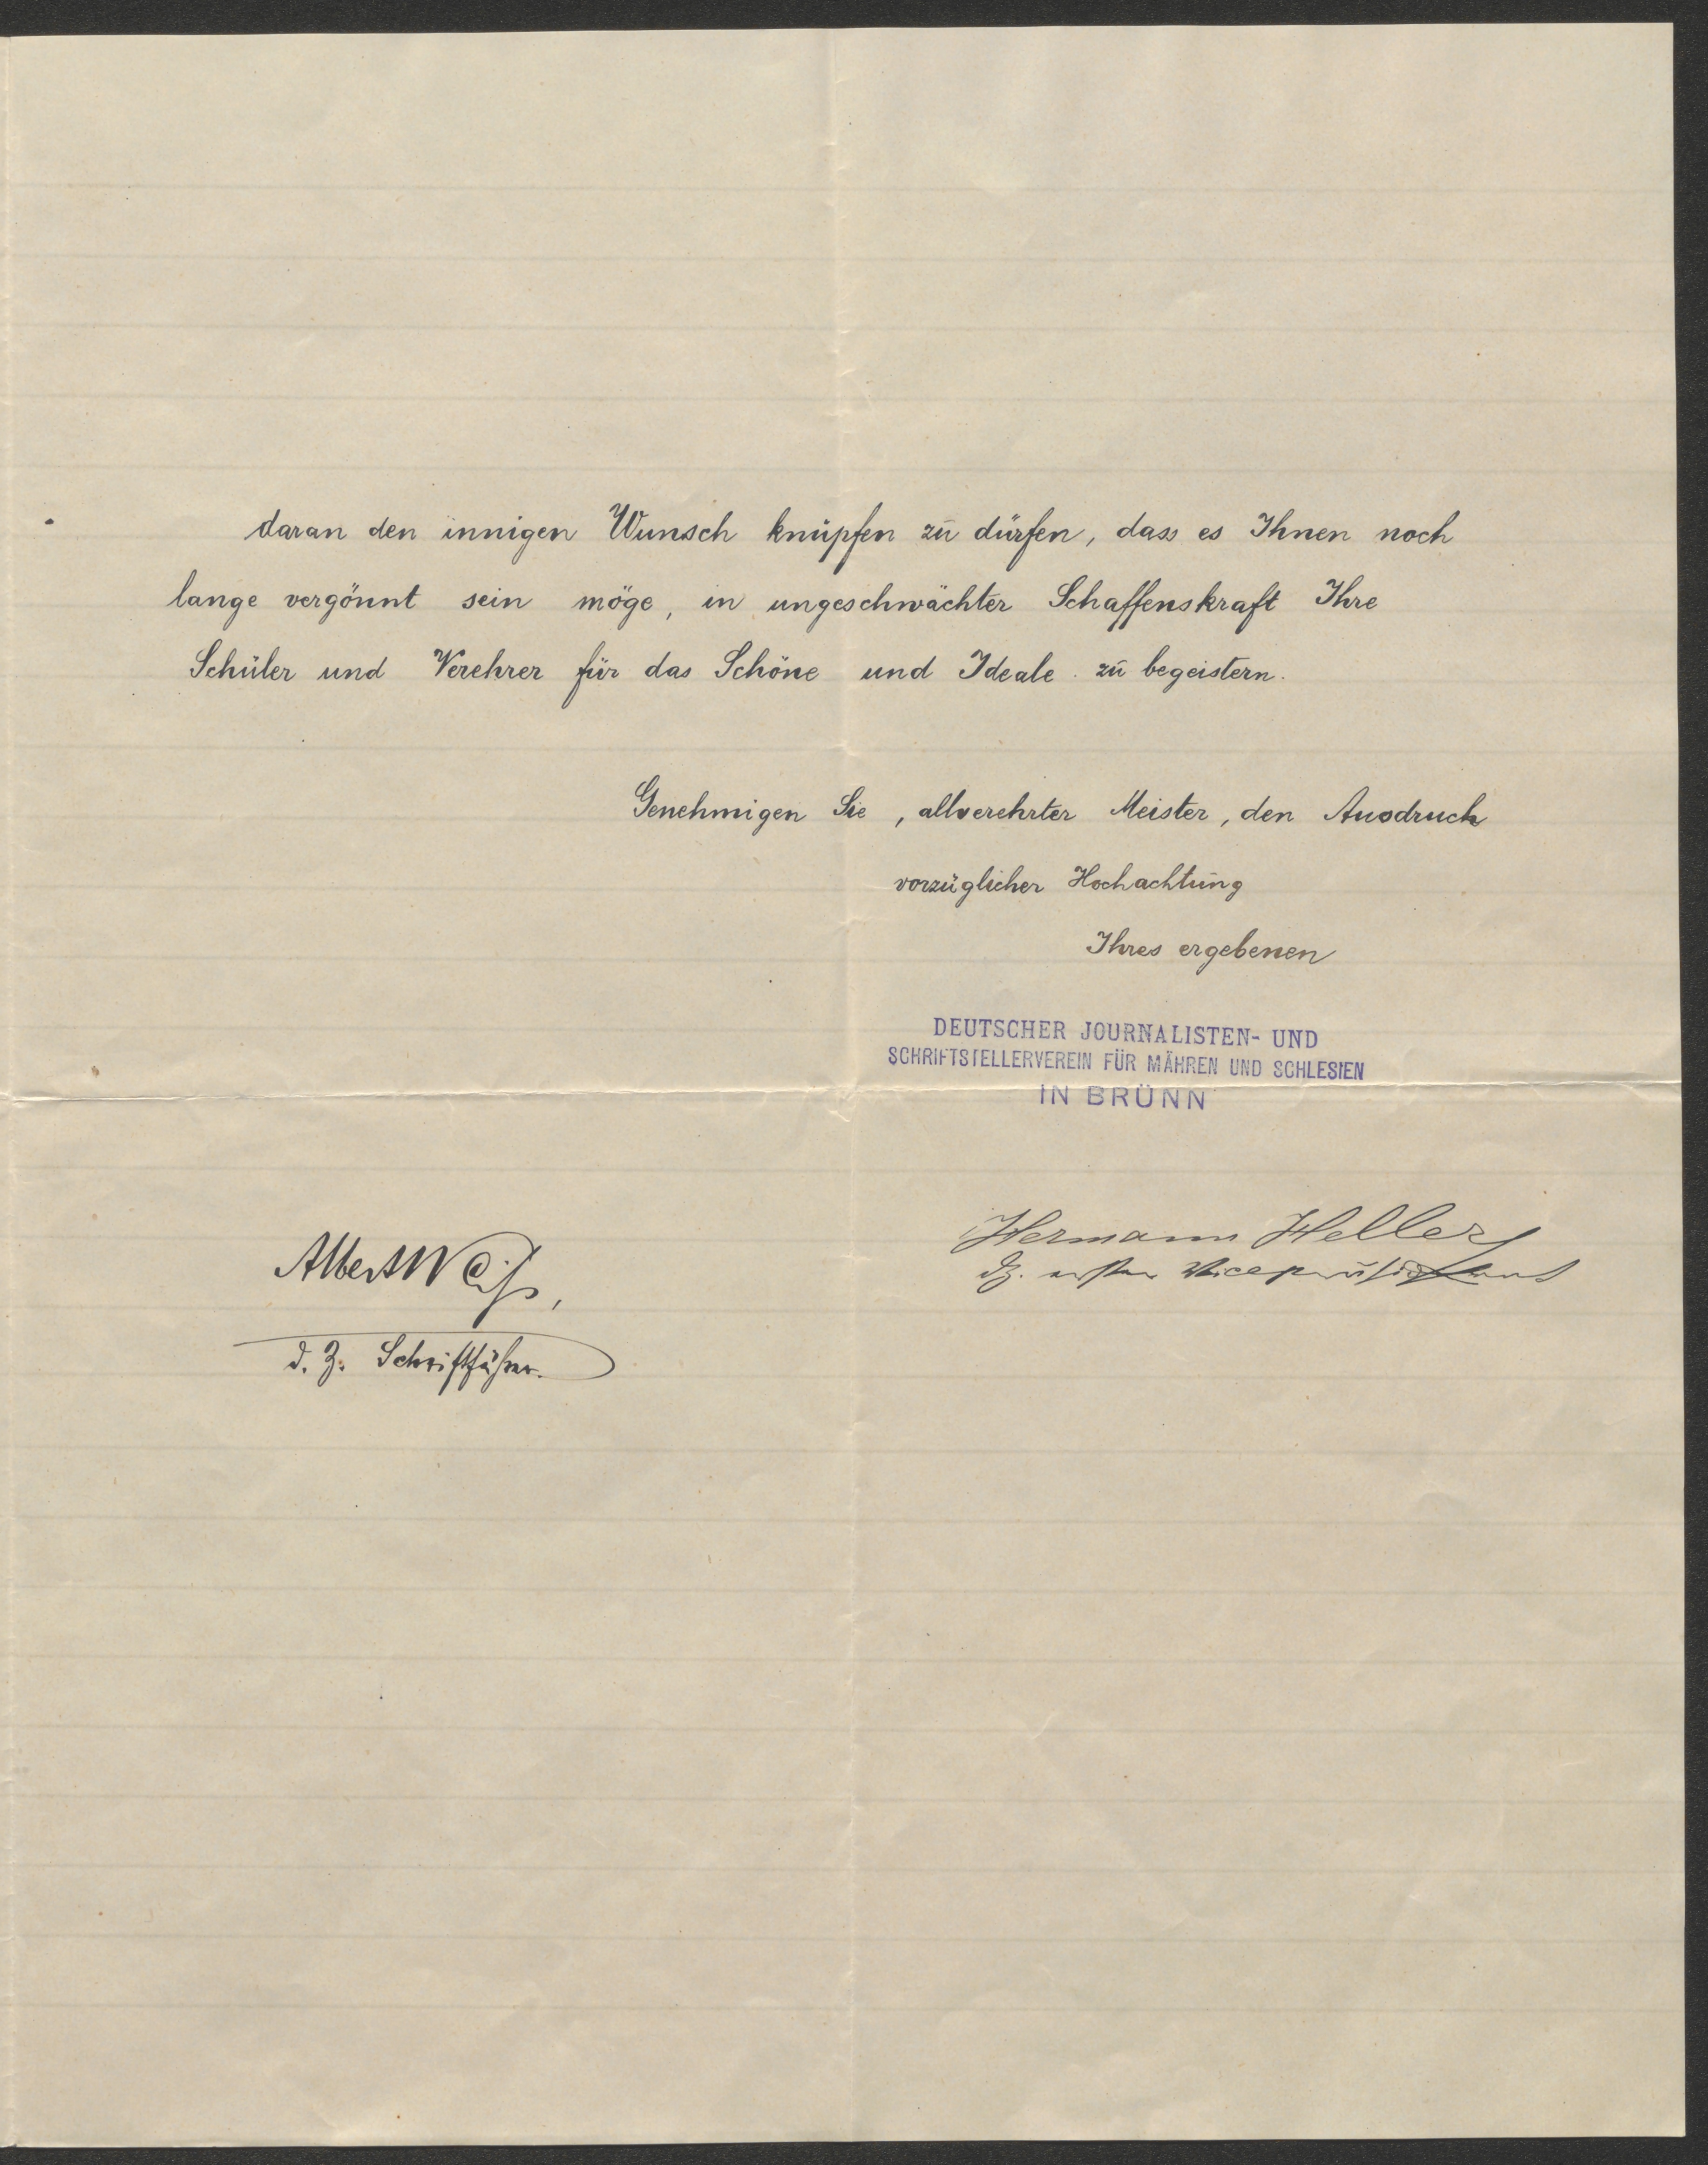 daran den innigen Wunsch knüpfen zu dürfen, dass es Ihnen noch
lange vergönnt sein möge, in ungeschwächter Schaffenskraft Ihre
Schüler und Verehrer für das Schöne und Ideale zu begeistern.
Genehmigen Sie, allverehrter Meister, den Ausdruck
vorzüglicher Hochachtung
Ihres ergebenen
DEUTSCHER JOURNALISTEN- UND
SCHRIFTSTELLERVEREIN FÜR MÄHREN UND SCHLESIEN
IN BRÜNN
Hermann Heller
dz. erster Vicepräsident
Albert Weiß,
d. Z. Schriftführer.